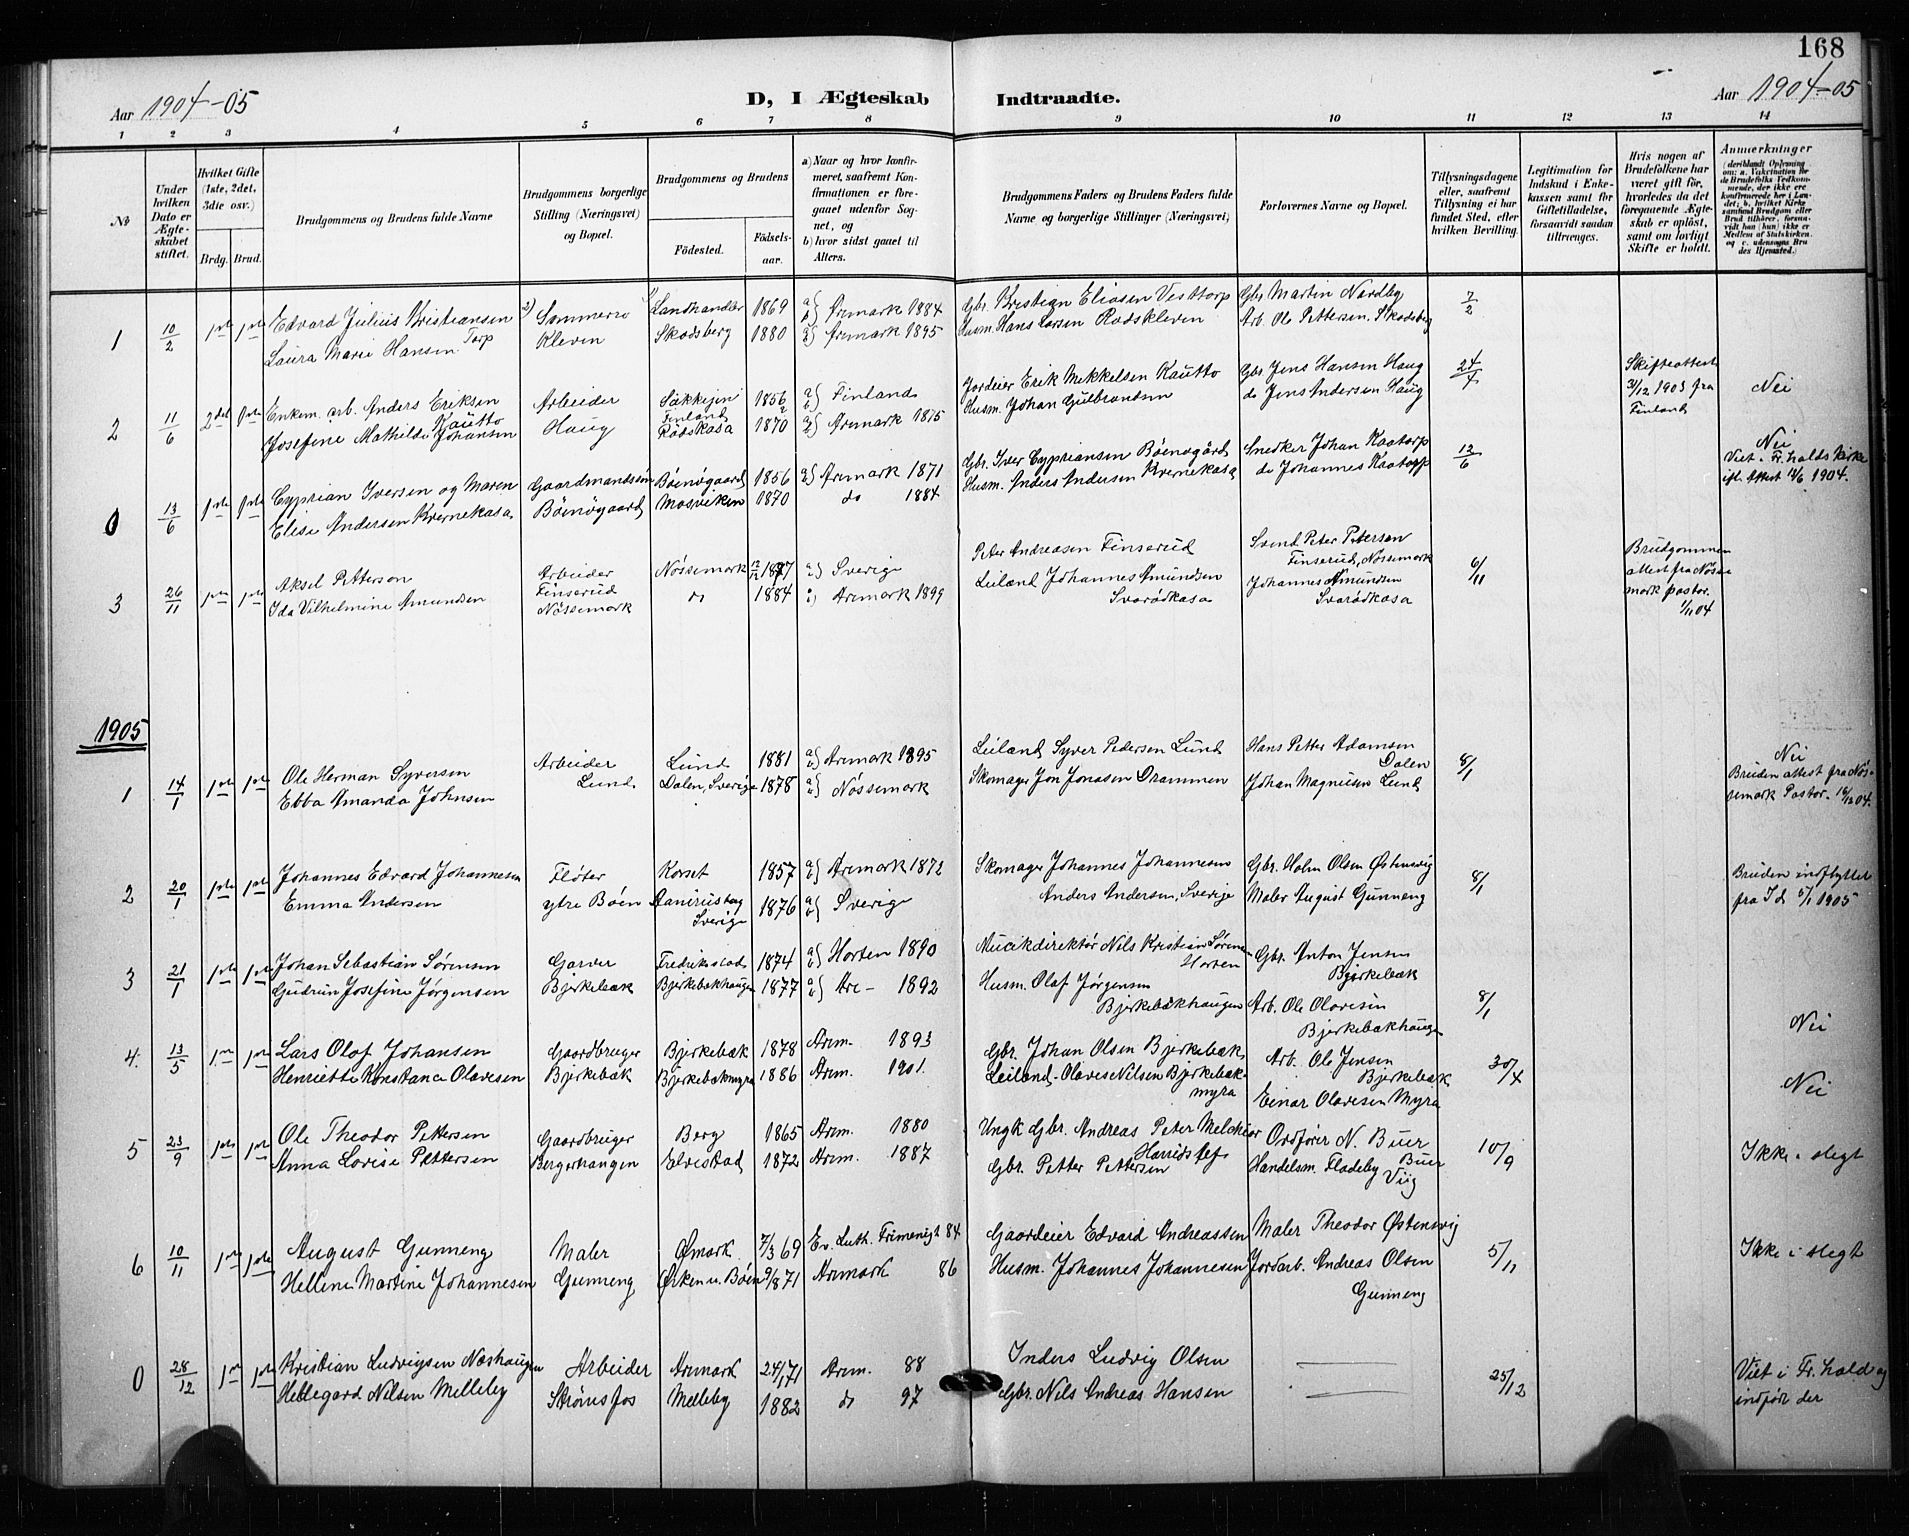 168
Aar 1904-05
D, I Ægteskab Indtraadte.
Aar 1904-05
1 2 3 4 5 6 7 8 9 10 11 12 13 14
№
Under hvilken Dato er Ægteskabet stiftet.
Hvilket Gifte (1ste, 2det, 3die osv.)
Brdg. Brud.
Brudgommens og Brudens fulde Navne
Brudgommens borgerlige Stilling (Næringsvei) og Bopæl.
Brudgommens og Brudens
Födested.
Födselsaar.
a) Naar og hvor konfirmeret, saafremt Konfirmationen er foregaaet udenför Sognet, og
b) hvor sidst gaaet til Alters.
Brudgommens Faders og Brudens Faders fulde Navne og borgerlige Stillinger (Næringsvei)
Forlovernes Navne og Bopæl.
Tillysningsdagene eller, saafremt Tillysning ei har fundet Sted, efter hvilken Bevilling.
Legitimation for Indskud i Enkekassen samt for Giftetilladelse, forsaavidt saadan tiltrænges.
Hvis nogen af Brudefolkene har været gift för, hvorledes da det foregaaende Ægteskab er oplöst, samt om lovligt Skifte er holdt.
Anmerkninger (deriblandt Oplysning om: a. Vakcination for de Brudefolks Vedkommende, der ikke ere konfirmerede her i Landet; b. hvilket Kirkesamfund Brudgom eller Brud tilhörer, forsaavidt han (hun) ikke er Medlem af Statskirken, og c. udensogns Brudes Hjemsted.)
1 10/2 1ste 1ste Edvard Julius Kristiansen Torp 2) Sommerro 1) Landhandler 1869 a) b) Aremark 1884 Gbr. Kristian Eliasen Vesttorp Gbr Martin Nordby 7/2
Laura Marie Hansen Kleven Skodsberg 1880 Aremark 1895 Husm. Hans Larsen Rodskleven Arb. Ole Pettersen, Skodsberg
2 11/6 2det 1ste Enkem. arb. Anders Eriksen Kautto Arbeider Finland 1856 a) b) Finland Jordeier Erik Mekkelsen Kautto Gbr Jens Hansen Haug 24/4 Skifteattest 31/12 1903 fra Finland Nei
Josefine Mathilde Johansen Haug Rödskasa 1870 Aremark 1875 Husm. Johan Gulbrandsen do Jens Andersen Haug
0 13/6 1ste 1ste Cyprian Iversen og Maren Gaardmandssön Böenögaard 1856 a) Aremark 1871 Gbr. Iver Cypriansen Böenögård Snedker Johan Kaatorp 12/6 Nei
Elise Andersen Kvernekasa Böenögaard Mosviken 1870 do 1884 Husm. Anders Andersen Kvernekasa do Johannes Kaatorp Viet i Fr.halds Kirke ifl. Attest 14/6 1904.
3 26/11 1ste 1ste Aksel Petterson Arbeider Finserud Nössemark Nössemark 1877 a) Sverige Peter Andreasen Finserud Svend Peter Petersen Finserud, Nössemark 6/11 Brudgommen attest fra Nössemark pastor. 1/11 04
Ida Vilhelmine Amundsen do 1884 Aremark 1899 Leiland Johannes Amundsen Svarödkasa Johannes Amundsen Svarödkasa
1905
1 14/1 1ste 1ste Ole Herman Syversen Arbeider Lund 1881 a) b) Aremark 1895 Leiland Syver Pedersen Lund Hans Petter Adamsen Dalen 8/1 Nei
Ebba Amanda Johnsen Lund Dalen, Sverige 1878 a) Nössemark Skomager Jon Jonasen Drammen Johan Magnusen Lund Bruden attest fra Nössemark Pastor. 16/12 04.
2 20/1 1ste 1ste Johannes Edvard Johannesen Fløter Korset 1857 a) Aremark 1872 Skomager Johannes Johannesen Gbr. Holm Olsen Østensvig 8/1 Bruden indflyttet
Emma Andersen ytre Böen Sverige 1876 a) Sverige Anders Andersen, Sverige Maler August Gunneng fra Id 5/1 1905
3 21/1 1ste 1ste Johan Sebastian Sørensen Garver Fredriksstad 1874 a) Horten 1890 Musikdirektør Nils Kristian Sørensen Horten Gbr. Anton Jensen Bjerkebæk
Gudrun Josefine Jørgensen Bjerkebæk Bjerkebækhaugen 1877 a) Are- 1892 Husm. Olaf Jørgensen Bjerkebækhaugen Arb. Ole Olavesen Bjerkebækhaugen 8/1 Nei
4. 13/5 1ste 1ste Lars Olaf Johansen Gaardbruger Bjerkebæk 1878 Arem. 1893 Gbr. Johan Olsen Bjerkebæk Arb. Ole Jensen Bjerkebæk 30/4
Henriette Konstance Olavesen Bjerkebæk Bjerkebækmyra 1886 Arem. 1901. Leiland. Olaves Nilsen Bjerkebækmyra Einar Olavesen Myra Nei
5 23/9 1ste 1ste Ole Theodor Pettersen Gaardbruger Berg 1865 Arem. 1880 Ungk Gbr. Andreas Peter Melchior Ordfører N. Buer Buer 10/9
Anna Lovise Pettersen Bergerhangen Elvestad 1872 Arem. 1887 Gbr. Petter Pettersen Handelsm. Fladeby Viig Ikke i slegt
6 10/11 1ste 1ste August Gunneng Maler Ømark 7/3 69 Ev. Luth. Frimenigt 84 Gaardeier Edvard Andreassen Maler Theodor Østensvig 5/11 Ikke i slegt
Hellene Martine Johannesen Gunneng Ørken u. Böen 9/8 71 Aremark 86 Husm. Johannes Johannesen Jordarb. Andreas Olsen Gunneng
0 28/12 1ste 1ste Kristian Ludvigsen Næshaugen Arbeider Aremark 24/1 71 Arem. 88 Inders Ludvig Olsen 25/12 Viet i Fr.hald og
Hildegard Nilsen Melleby Strømsfos Melleby 1882 do 97 Gbr. Nils Andreas Hansen indført der